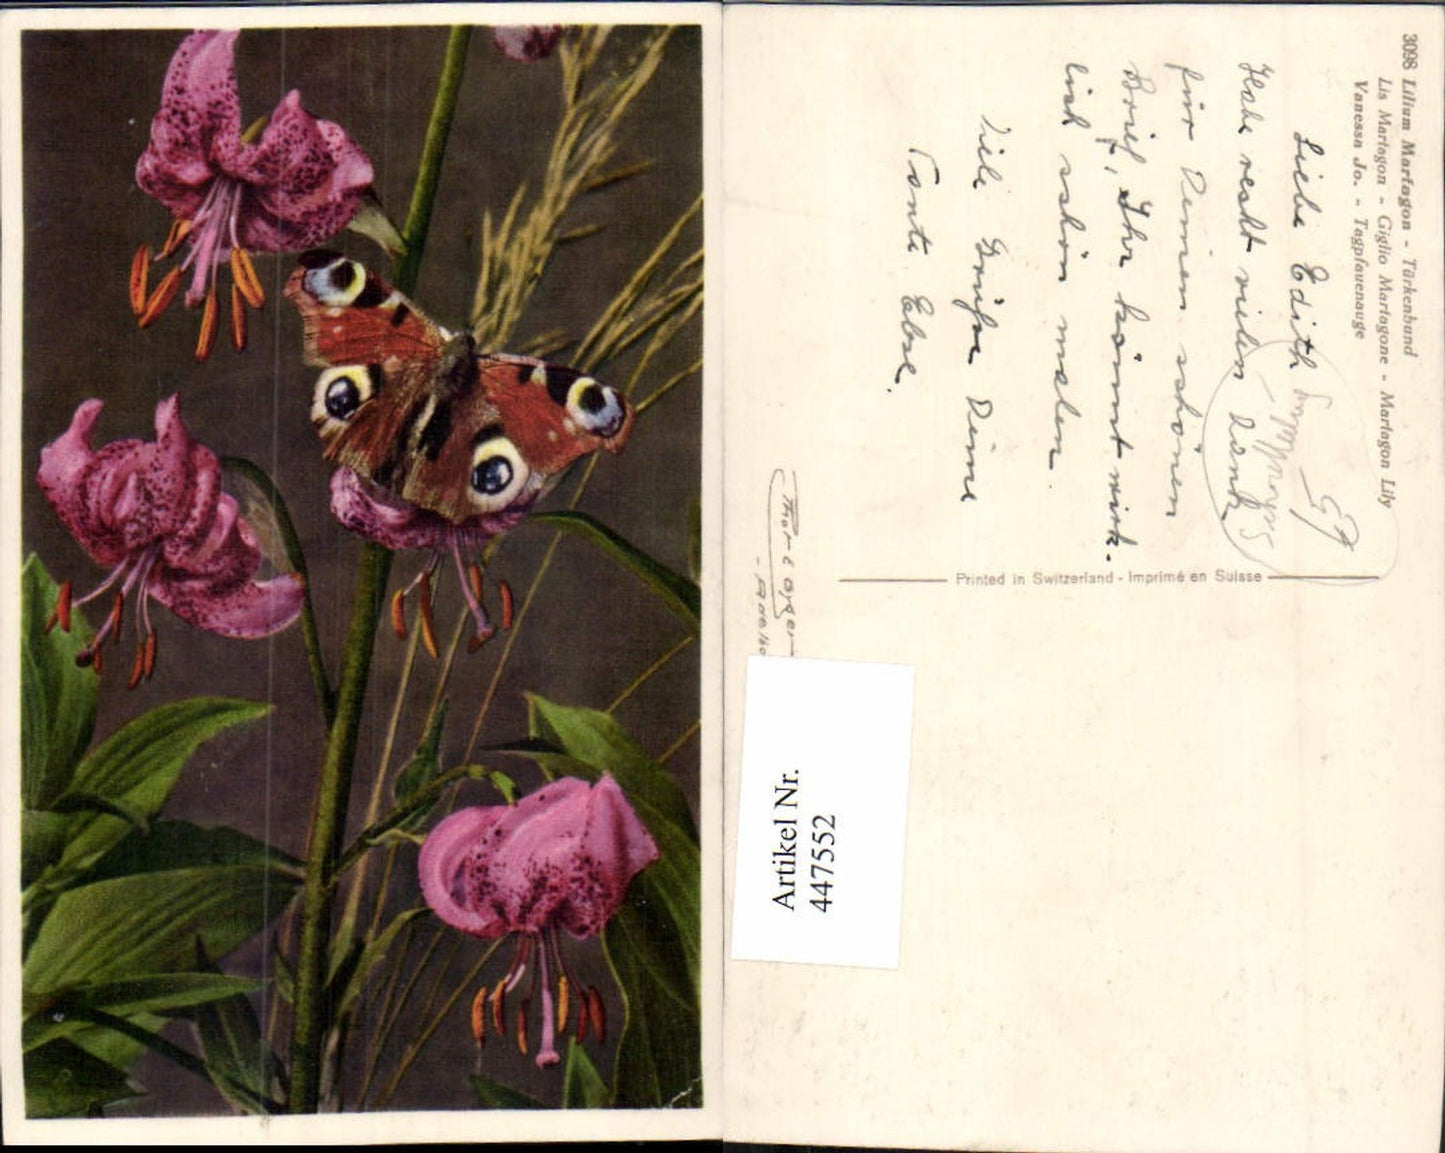 3098 Lilium Martagon - Türkenbund
Lis Martagon - Giglio Martagone - Martagon Lily
Vanessa Jo. - Tagpfauenauge
Liebe Edith
Habe recht vielen Dank
für Deinen schönen
Brief, Ihr könnt wirk-
lich schön malen.
Viele Grüße Deine
Tante Ebse.
Printed in Switzerland - Imprimé en Suisse
Artikel Nr.
447552